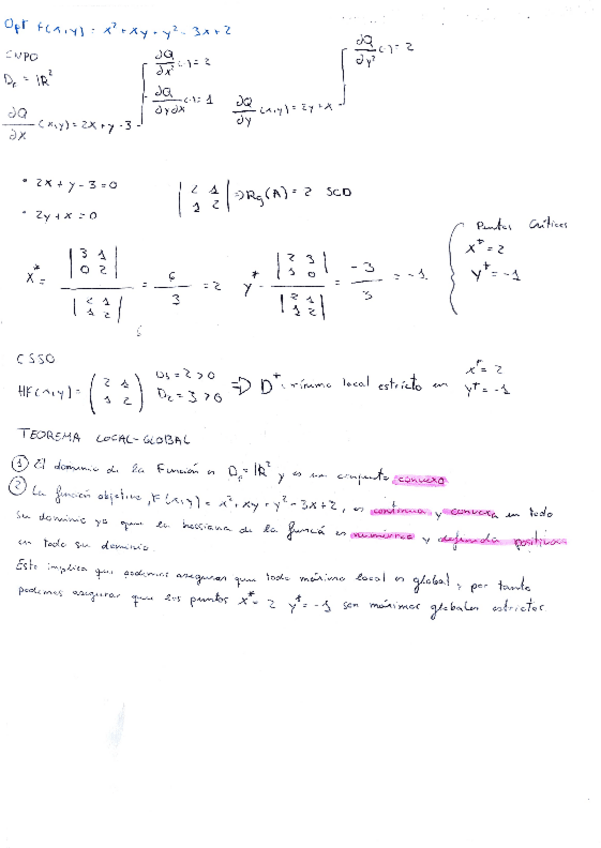 Opt F(x,y) = x² + xy + y² - 3x + 2
CNPO
D_F = IR²
∂Q/∂x (x,y) = 2x + y - 3
∂Q/∂x² (·) = 2
∂Q/∂y∂x (·) = 1
∂Q/∂y (x,y) = 2y + x
∂Q/∂y² (·) = 2
• 2x + y - 3 = 0
• 2y + x = 0
|2 1; 1 2| ⇒ Rg(A) = 2 SCD
x* = |3 1; 0 2| / |2 1; 1 2| = 6/3 = 2
y* = |2 3; 1 0| / |2 1; 1 2| = -3/3 = -1.
Puntos Críticos
x* = 2
y* = -1
CSSO
HF(x,y) = (2 1; 1 2) D₁ = 2 > 0 D₂ = 3 > 0 ⇒ D⁺: mínimo local estricto en x* = 2 y* = -1
TEOREMA LOCAL-GLOBAL
① El dominio de la Función es D_F = IR² y es un conjunto convexo
② La función objetivo, F(x,y) = x² + xy + y² - 3x + 2, es continua y convexa en todo
su dominio ya que la hessiana de la función es numérica y definida positiva
en todo su dominio.
Esto implica que podemos asegurar que todo máximo local es global, por tanto
podemos asegurar que los puntos x* = 2 y* = -1 son máximos globales estrictos.